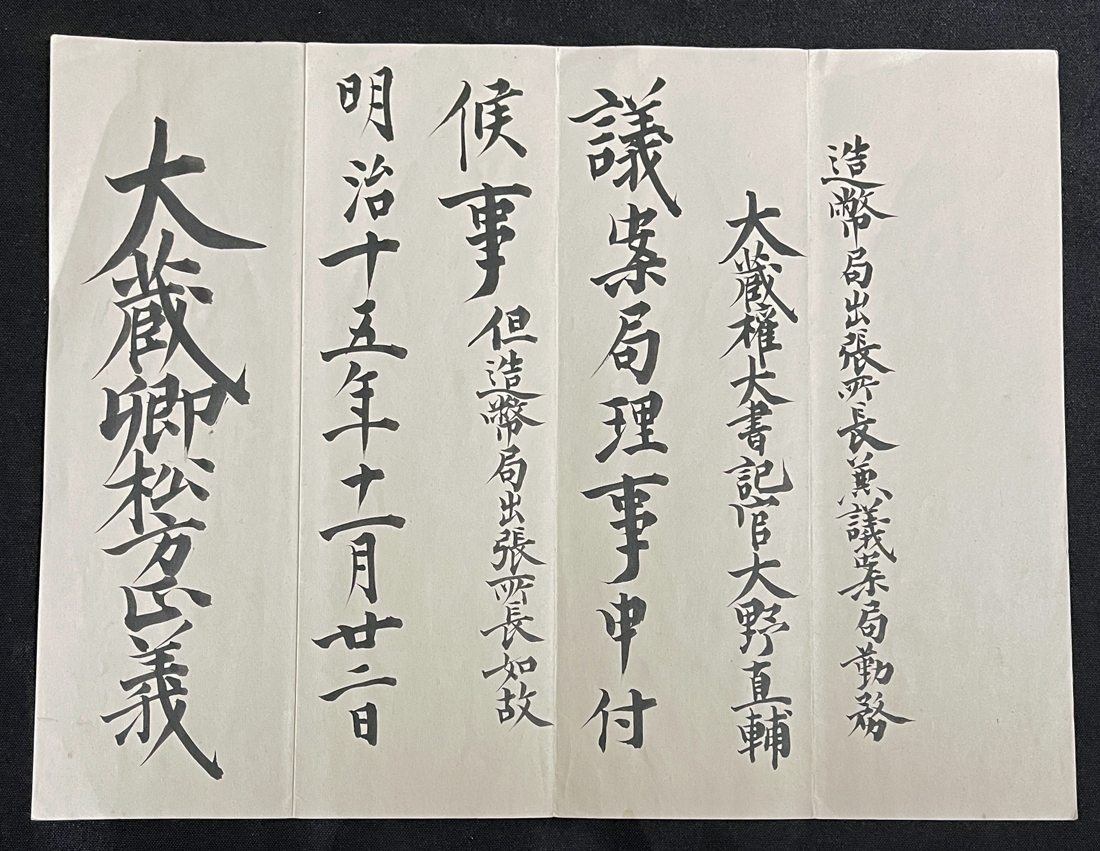 造幣局出張所長兼議案局勤務
大蔵権大書記官大野直輔
議案局理事申付
候事但造幣局出張所長如故
明治十五年十一月廿二日
大蔵卿松方正義